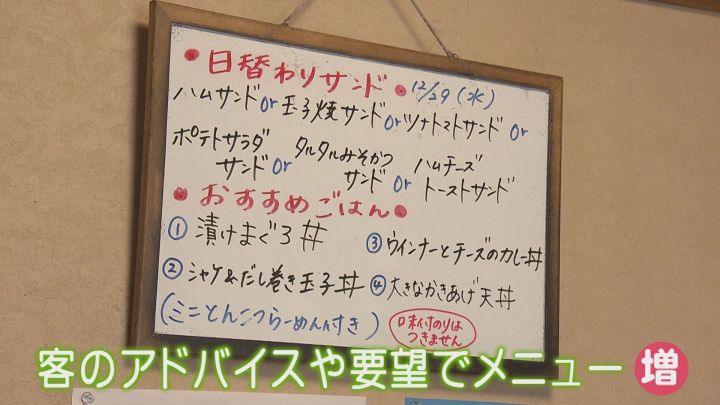 ●日替わりサンド● 12/29(水)
ハムサンドor玉子焼サンドorツナトマトサンドor
ポテトサラダサンドor タルタルみそかつサンドor ハムチーズトーストサンド
●おすすめごはん●
①漬けまぐろ丼 ③ウインナーとチーズのカレー丼
②シャケ&だし巻き玉子丼 ④大きなかきあげ天丼
(ミニとんこつらーめん付き) 味付のりはつきません
客のアドバイスや要望でメニュー増